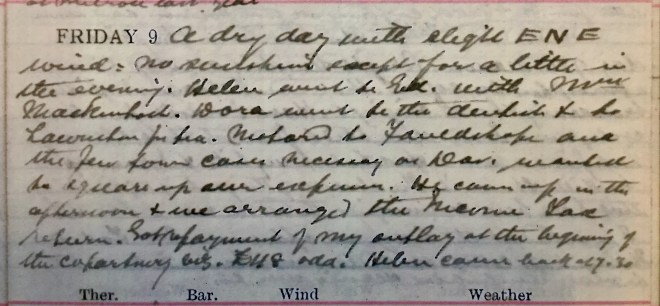 at Melrose last year
FRIDAY 9 A dry day with slight ENE
wind: no sunshine except for a little in
the evening. Helen went to Ed. with Mrs
Mackintosh. Dora went to the dentist & to
for tea. Motored to Fauldshope and
the town came necessary as Dav. wanted
to square up our expenses. He came up in the
afternoon & we arranged the Income Tax
return. Got repayment of my outlay at the begining of
the copartnery viz. £118 odd. Helen came back at 7.30
Ther. Bar. Wind Weather